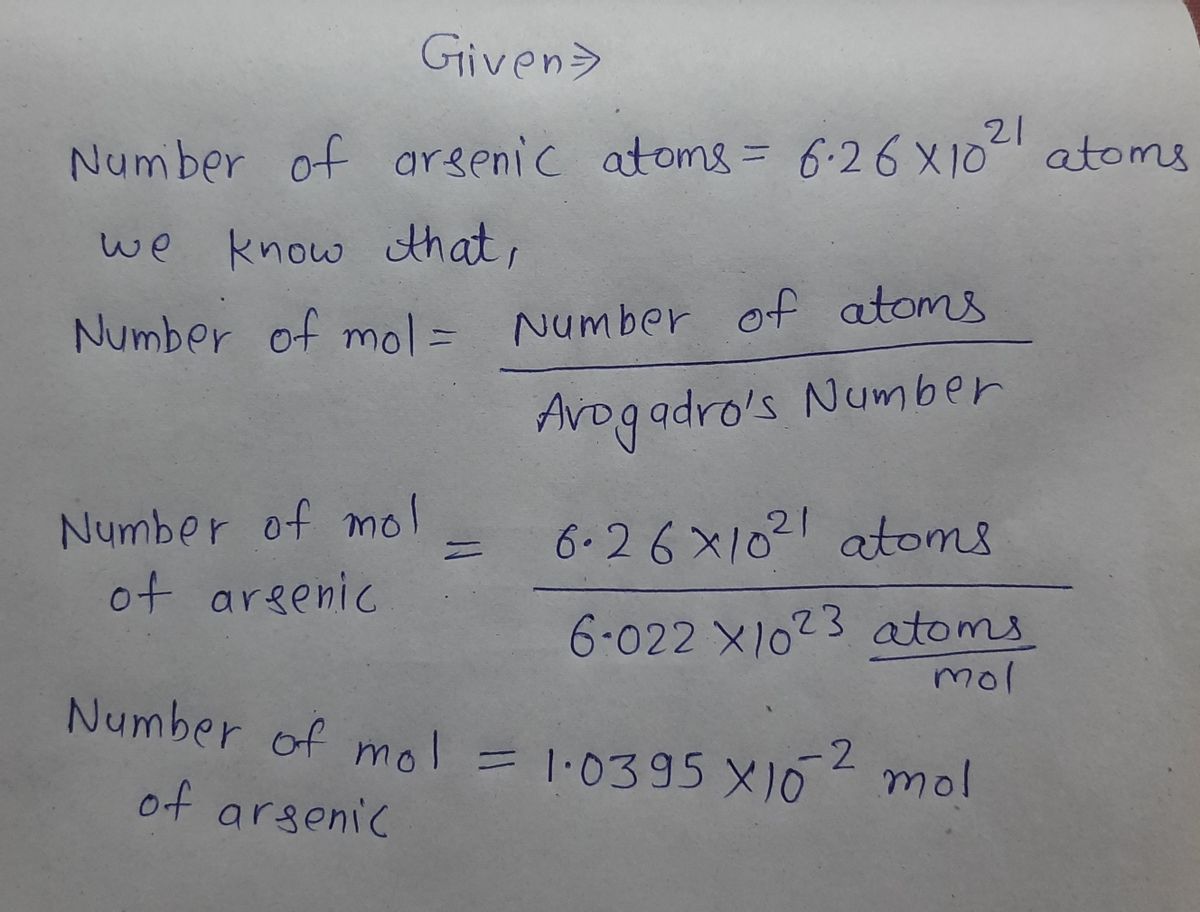 Given⇒
Number of arsenic atoms = 6.26 X 10²¹ atoms
we know that,
Number of mol = Number of atoms
Avogadro's Number
Number of mol
of arsenic = 6.26 X 10²¹ atoms
6.022 X 10²³ atoms
mol
Number of mol
of arsenic = 1.0395 X 10⁻² mol